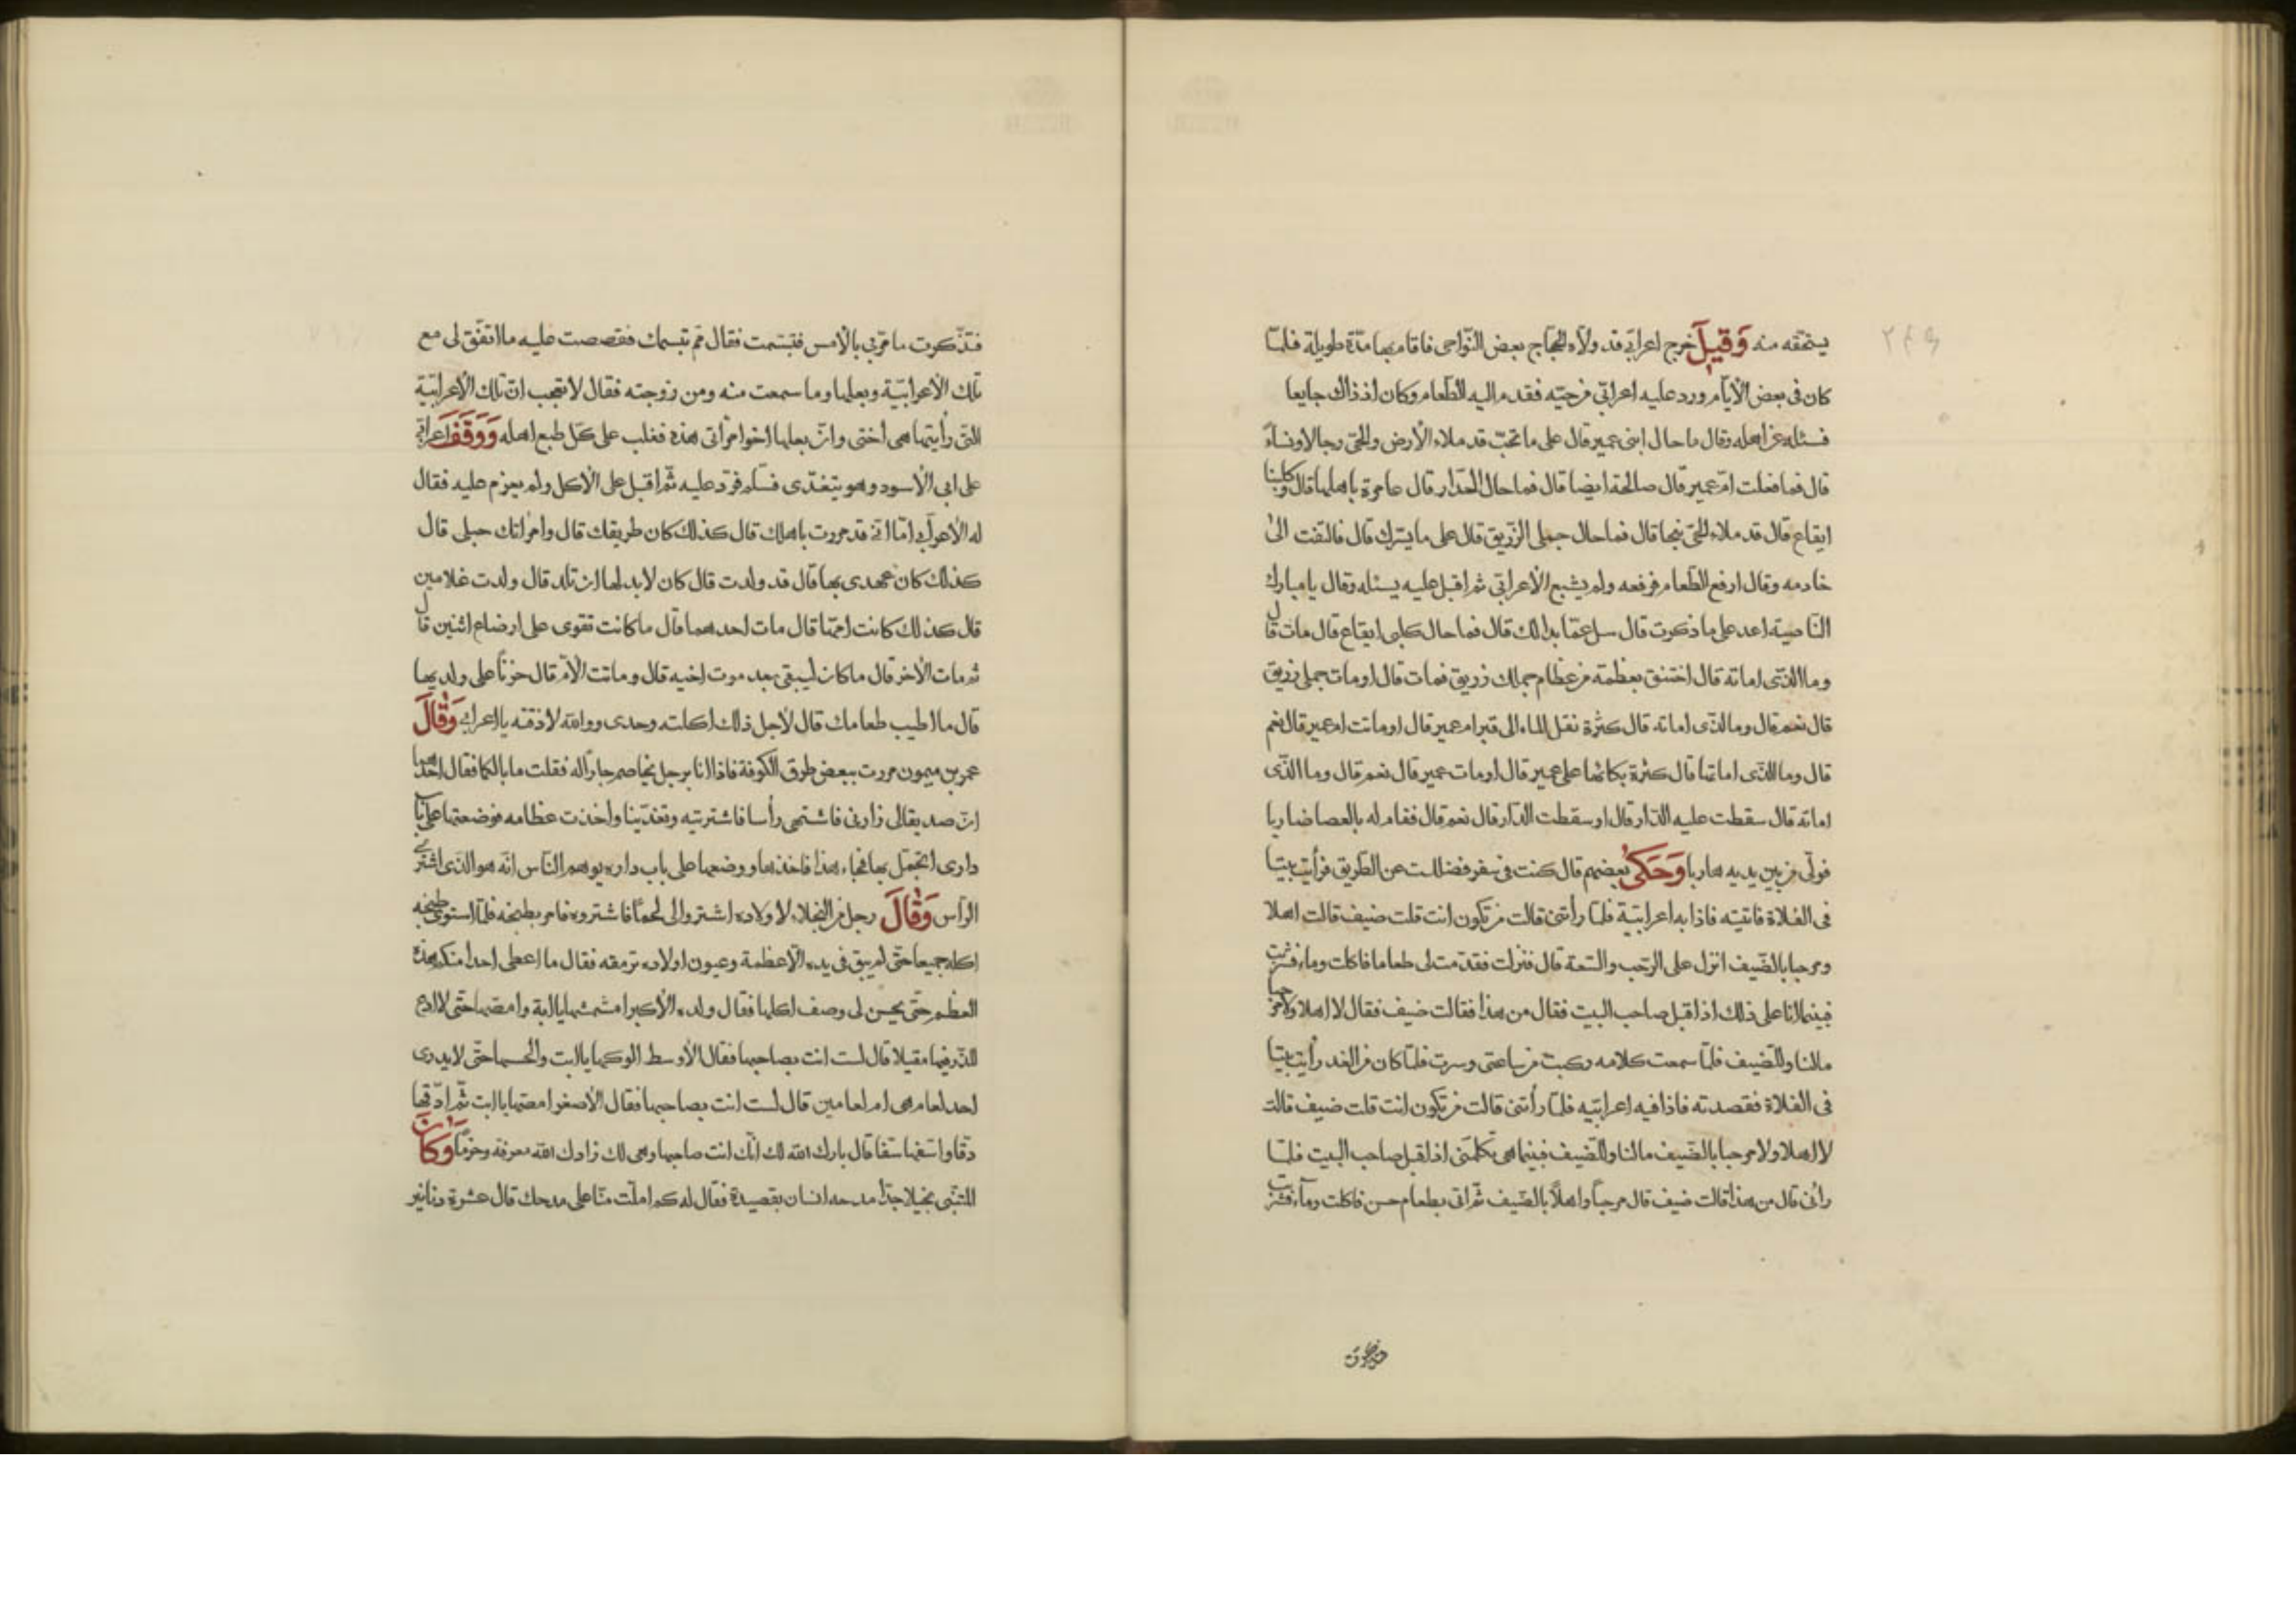 يستحقه منه وَقِيلَ خرج اعرابيّ قد ولّاه الحجّاج بعض النّواحى فاقام بها مدّة طويلة فلمّا
كان فى بعض الأيّام ورد عليه اعرابّى من حيّه فقدم اليه الطّعام وكان اذ ذاك جايعا
فسئله عن اهله وقال ما حال ابنى عمير قال على ما تحبّ قد ملاء الأرض والحىّ رجالا ونساءً
قال فما فعلت امّ عمير قال صالحة ايضا قال فما حال الدّار قال عامرة باهلها قال وكلبنا
ايقاع قال قد ملاء الحىّ نبحا قال فما حال جملى الزّريق قال على ما يسّرك قال فالتفت الىٰ
خادمه وقال ارفع الطّعام فرفعه ولم يشبع الأعرابّى ثم اقبل عليه يسئله وقال يا مبارك
النّاصية اعد على ما ذكرت قال سل عمّا بدا لك قال فما حال كلبى ايقاع قال مات قال
وما الذّى اماته قال اختنق بعظمة من عظام جملك زريق فمات قال او مات جملى زريق
قال نعم قال وما الذّى اماته قال كثرة نقل الماء الى قبر ام عمير قال او ماتت ام عمير قال نعم
قال وما الذّى اماتها قال كثرة بكائها على عمير قال او مات عمير قال نعم قال وما الذّى
اماته قال سقطت عليه الدّار قال او سقطت الدّار قال نعم قال فقام له بالعصا ضاربا
فولّى من بين يديه هاربا وَحَكىٰ بعضهم قال كنت فى سفر فضللت عن الطّريق فرأيت بيتا
فى الفلاة فاتيته فاذا به اعرابيّة فلمّا رأتنى قالت من تكون انت قلت ضيف قالت اهلا
ومرحبا بالضّيف انزل على الرّحب والسّعة قال فنزلت فقدّمت لى طعاما فاكلت وماء فشربت
فبينما انا على ذلك اذ اقبل صاحب البيت فقال من هذا فقالت ضيف فقال لا اهلا ولا مرحبا
مالنا وللضّيف فلمّا سمعت كلامه ركبت من ساعتى وسرت فلمّا كان من الغد رأيت بيتا
فى الفلاة فقصدته فاذا فيه اعرابيّه فلمّا رأتنى قالت من تكون انت قلت ضيف قالت
لا اهلا ولا مرحبا بالضّيف مالنا وللضّيف فبينما هى تكلّمنى اذ اقبل صاحب البيت فلمّا
رأنى قال من هذا قالت ضيف قال مرحباً واهلاً بالضّيف ثمّ اتى بطعام حسن فاكلت وماء فشربت
فتذّكرت ما مرّبى بالأمس فتبسّمت فقال ممّ تبسمك فقصصت عليه ما اتفّق لى مع
تلك الأعرابيّة وبعلها وما سمعت منه ومن زوجته فقال لا تعجب انّ تلك الأعرابيّة
التّى رأيتها هى أختى وانّ بعلها اخو امرأتى هذه فغلب على كلّ طبع اهله وَوَقَفَ اعرابّى
على ابى الأسود وهو يتغدّى فسلّم فردّ عليه ثّم اقبل على الأكل ولم يعزم عليه فقال
له الأعرابّى امّا انّى قد مررت باهلك قال كذلك كان طريقك قال وامرأتك حبلى قال
كذلك كان عهدى بها قال قد ولدت قال كان لا بد لها ان تلد قال ولدت غلامين
قال كذلك كانت امّها قال مات احدهما قال ما كانت تقوى على ارضاع اثنين قال
ثم مات الأخر قال ما كان ليبقى بعد موت اخيه قال وماتت الأمّ قال حزناً على ولديها
قال ما اطيب طعامك قال لأجل ذلك اكلته وحدى ووالله لا ذقته يا اعرابى وَقَالَ
عمر بن ميمون مررت ببعض طرق الكوفة فاذا انا برجل يخاصم جاراً له فقلت ما بالكما فقال احدهما
انّ صديقا لى زارنى فاشتهى رأسا فاشتريته وتغدّينا واخذت عظامه فوضعتها على باب
دارى اتجمّل بها فجاء هذا فاخذها ووضعها على باب داره يوهم النّاس انّه هو الذّى اشترى
الرّأس وَقَالَ رجل من البخلاء لاولاده اشتروا لى لحماً فاشتروه فامر بطبخه فلمّا استوى طبخه
اكله جميعا حتّى لم يبق فى يده الّا عظمة وعيون اولاده ترمقه فقال ما اعطى احدا منكم هذه
العظم حتّى يحسن لى وصف اكلها فقال ولده الأكبر امشمشها يا ابة وامصّها حتّى لا ادع
للذّر فيها مقيلا قال لست انت بصاحبها فقال الأوسط الوكها يا ابت والحسها حتّى لا يدرى
احد لعام هى ام لعامين قال لست انت بصاحبها فقال الأصغر امصّها يا ابت ثّم ادّقها
دقا واسّفها سفّا قال بارك الله لك انّك انت صاحبها وهى لك زادك الله معرفة وحزماً وَكَانَ
المتنبّى بخيلا جدّاً مدحه انسان بقصيدة فقال له كم امّلت منّا على مدحك قال عشرة دنانير